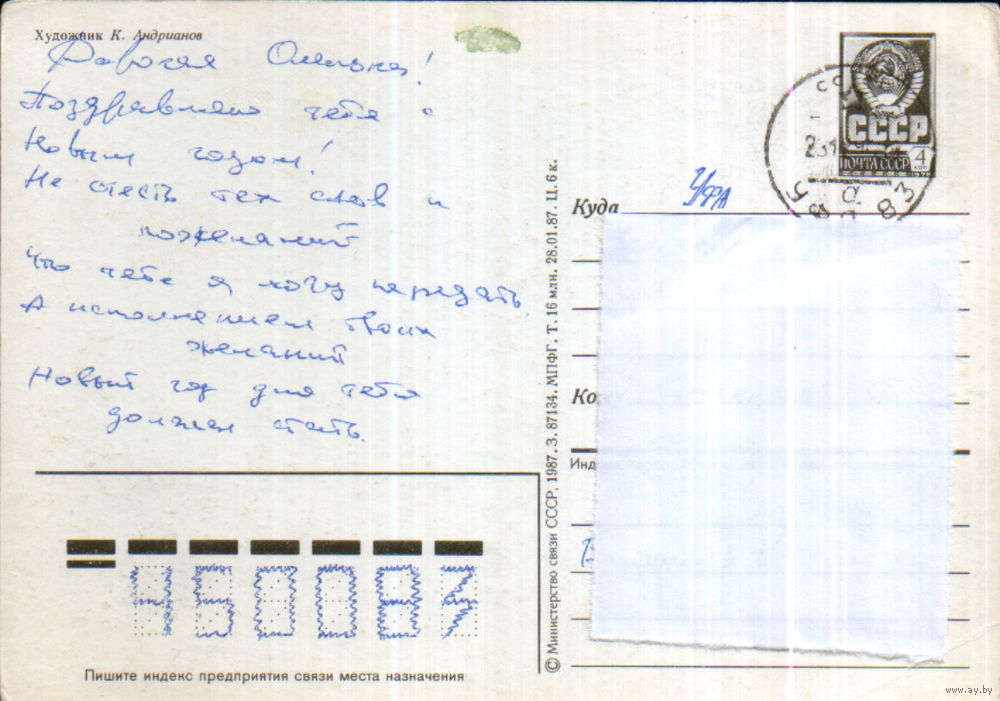 Художник К. Андрианов
Дорогая Оленька!
Поздравляю тебя с
Новым годом!
Не счесть тех слов и
пожеланий
Что тебе я хочу передать
А исполнением твоих
желаний
Новый год для тебя
должен стать.
СССР
ПОЧТА СССР 4 коп
Куда УФА
Ко
Инд
© Министерство связи СССР, 1987. З. 87134. МПФГ, Т. 16 млн. 28.01.87. Ц. 6 к.
450083
Пишите индекс предприятия связи места назначения
www.ay.by